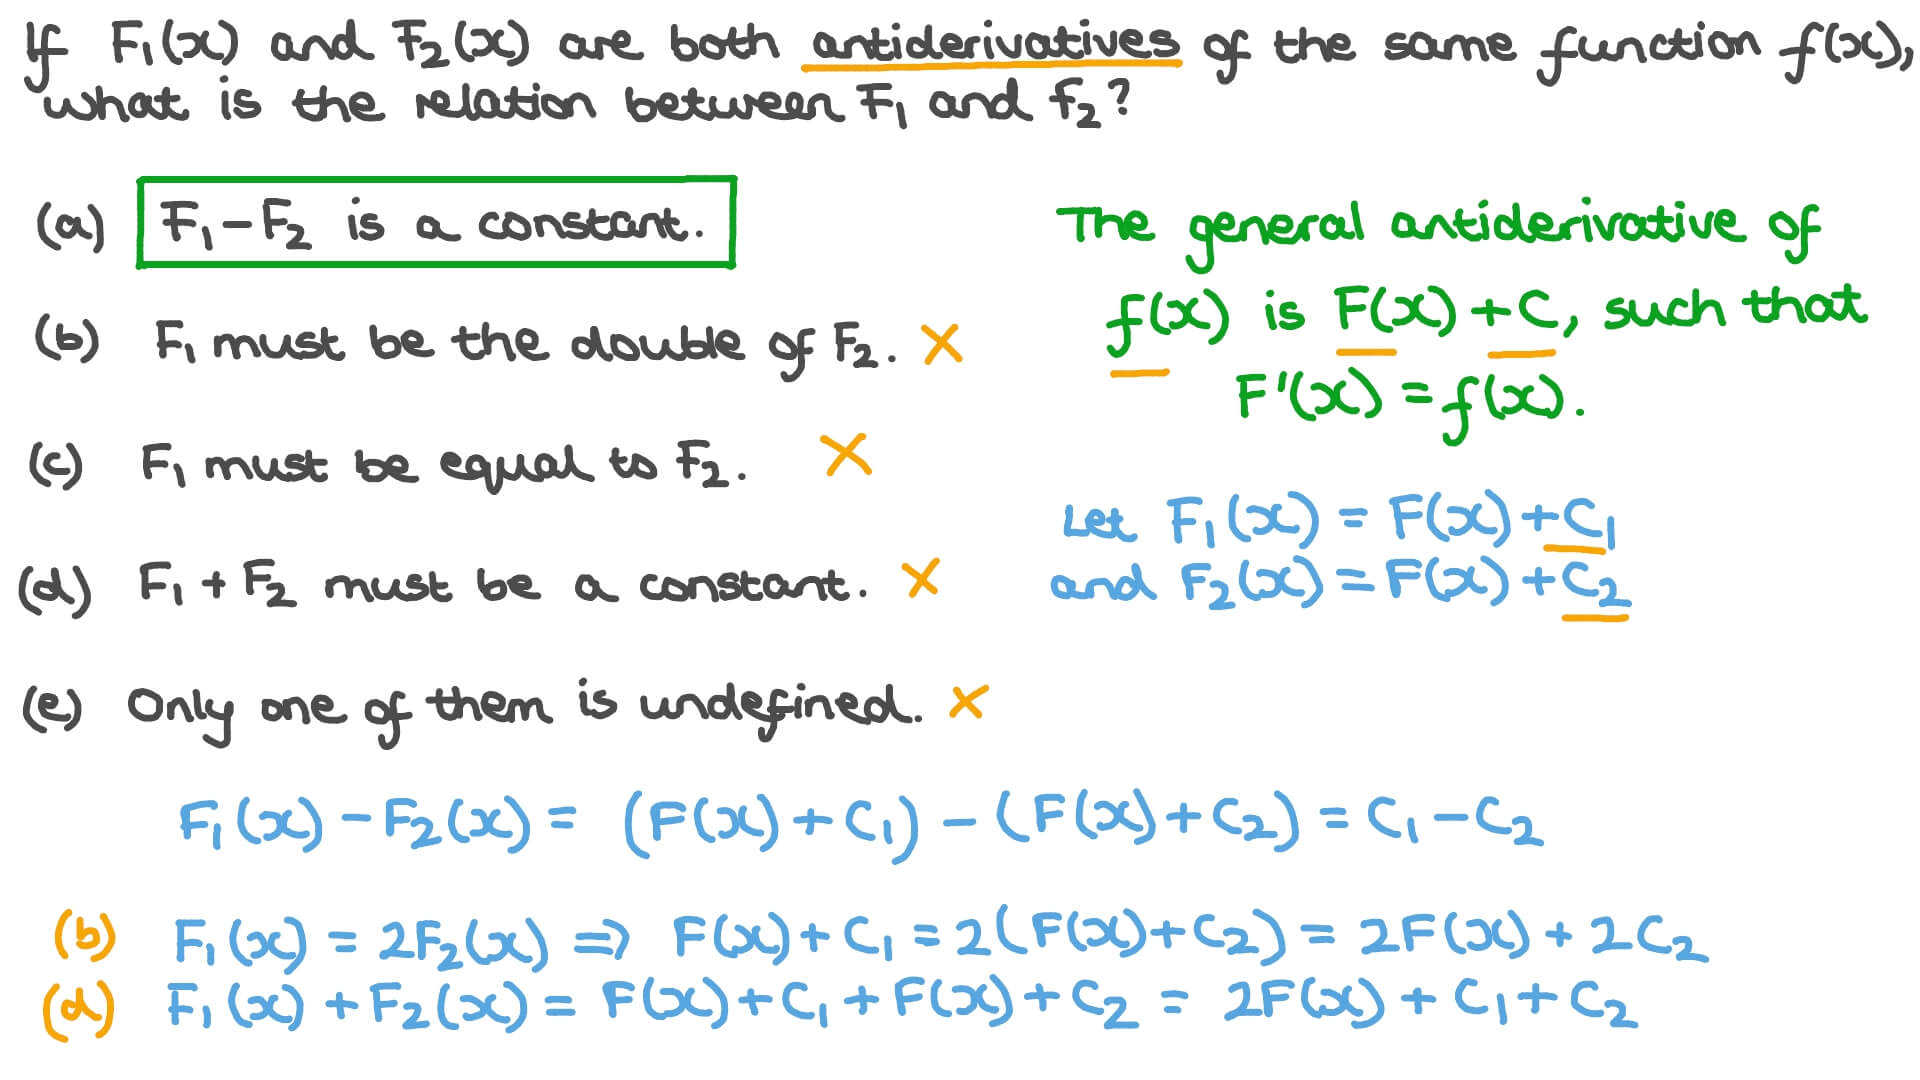 If F₁(x) and F₂(x) are both antiderivatives of the same function f(x),
what is the relation between F₁ and f₂?
(a) F₁-F₂ is a constant.
(b) F₁ must be the double of F₂. ×
(c) F₁ must be equal to F₂. ×
(d) F₁ + F₂ must be a constant. ×
(e) Only one of them is undefined. ×
The general antiderivative of
f(x) is F(x) + C, such that
F'(x) = f(x).
Let F₁(x) = F(x) + C₁
and F₂(x) = F(x) + C₂
F₁(x) - F₂(x) = (F(x) + C₁) - (F(x) + C₂) = C₁ - C₂
(b) F₁(x) = 2F₂(x) ⇒ F(x) + C₁ = 2(F(x) + C₂) = 2F(x) + 2C₂
(d) F₁(x) + F₂(x) = F(x) + C₁ + F(x) + C₂ = 2F(x) + C₁ + C₂